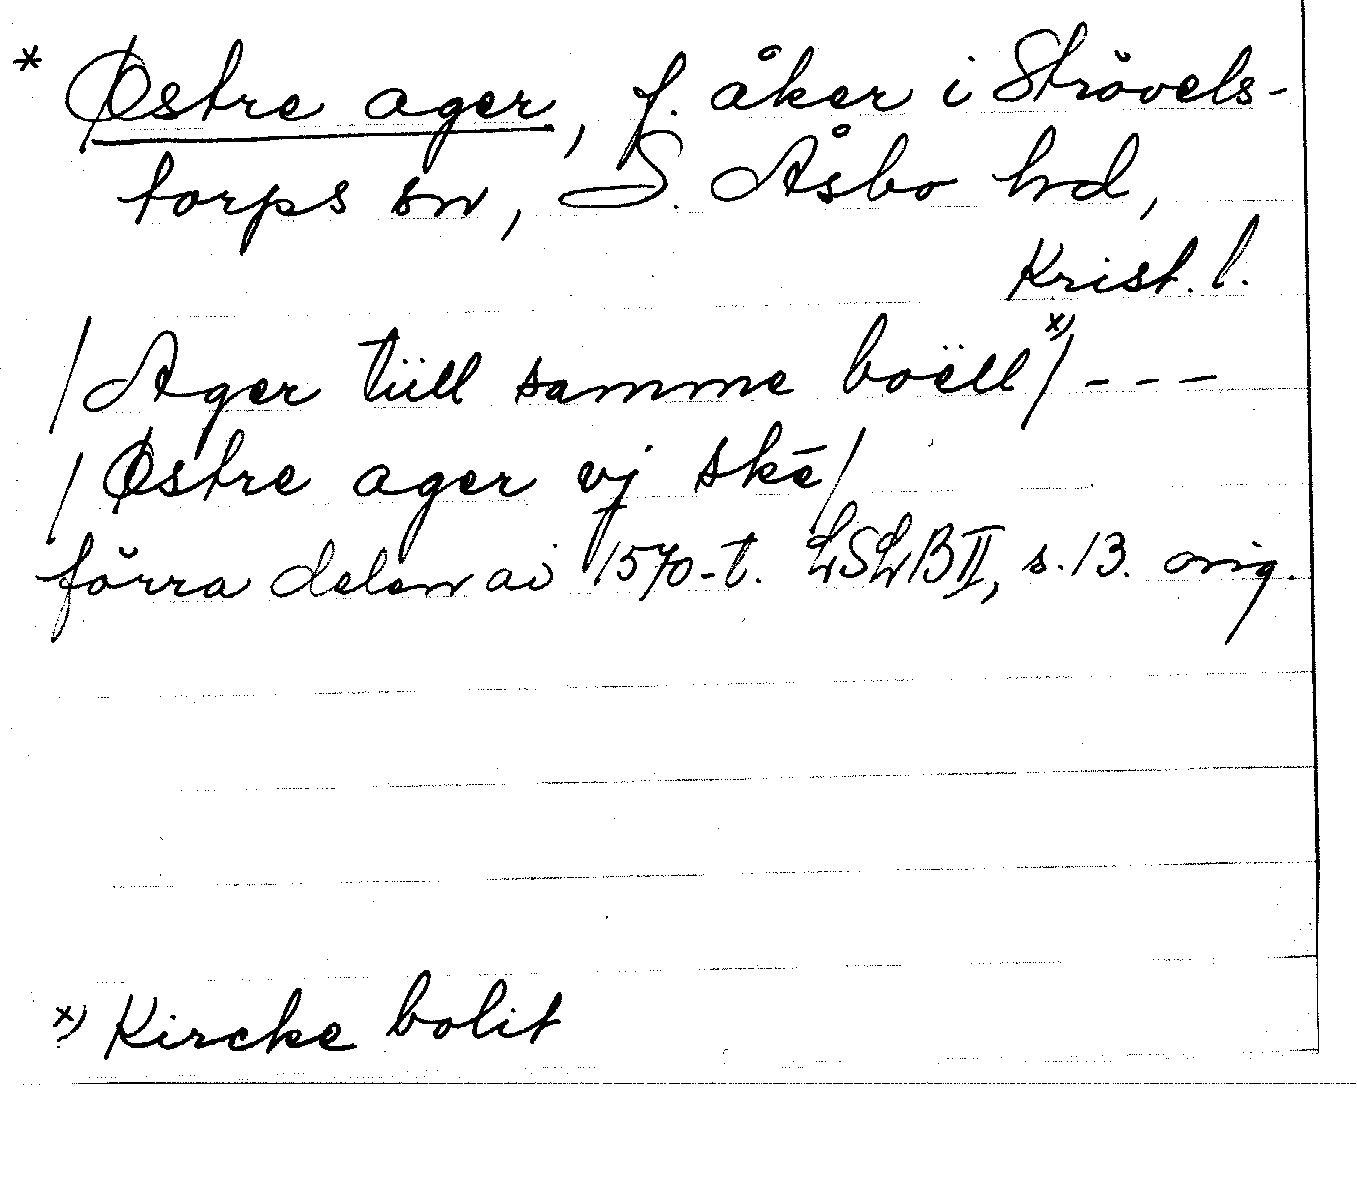 * Østre ager, f. åker i Strövels-
torps sn, S. Åsbo hd,
Krist. l.
/Ager tüll samme boëll x)/ - - -
/Østre ager vj skē/
förra delen av 1570-t. LSLB II, s. 13. orig.
x) Kircke bolit